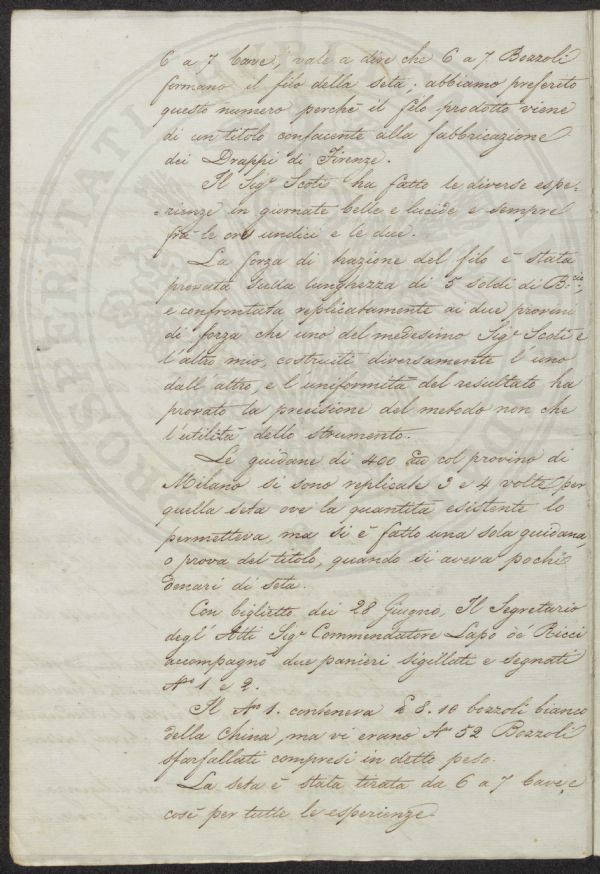 6 a 7 bave, vale a dire che 6 a 7 Bozzoli
formano il filo della seta; abbiamo preferito
questo numero perchè il filo prodotto viene
di un titolo confacente alla fabbricazione
dei Drappi di Firenze.
Il Sigr Scoti ha fatto le diverse espe-
=rienze in giornate belle e lucide e sempre
fra le ore undici e le due.
La forza di trazione del filo è stata
provata sulla lunghezza di 5 soldi di Bcio,
e confrontata replicatamente ai due provini
di forza che uno del medesimo Sigr Scoti e
l'altro mio, costruiti diversamente l'uno
dall'altro, e l'uniformità del resultato ha
provato la precisione del metodo non che
l'utilità dello strumento.
Le guidane di 400 col provino di
Milano si sono replicate 3 e 4 volte per
quella seta ove la quantità esistente lo
permetteva, ma si è fatto una sola guidana,
o prova del titolo, quando si aveva pochi
denari di seta.
Con biglietto dei 28 Giugno, Il Segretario
degl'Atti Sigr Commendatore Lapo de Ricci
accompagnò due panieri sigillati e segnati
No 1 e 2.
Il No 1. conteneva £ 8.10 bozzoli bianco
della China, ma vi erano No 52 Bozzoli
sfarfallati compresi in detto peso.
La seta è stata tirata da 6 a 7 bave, e
così per tutte le esperienze
PROSPERITATI